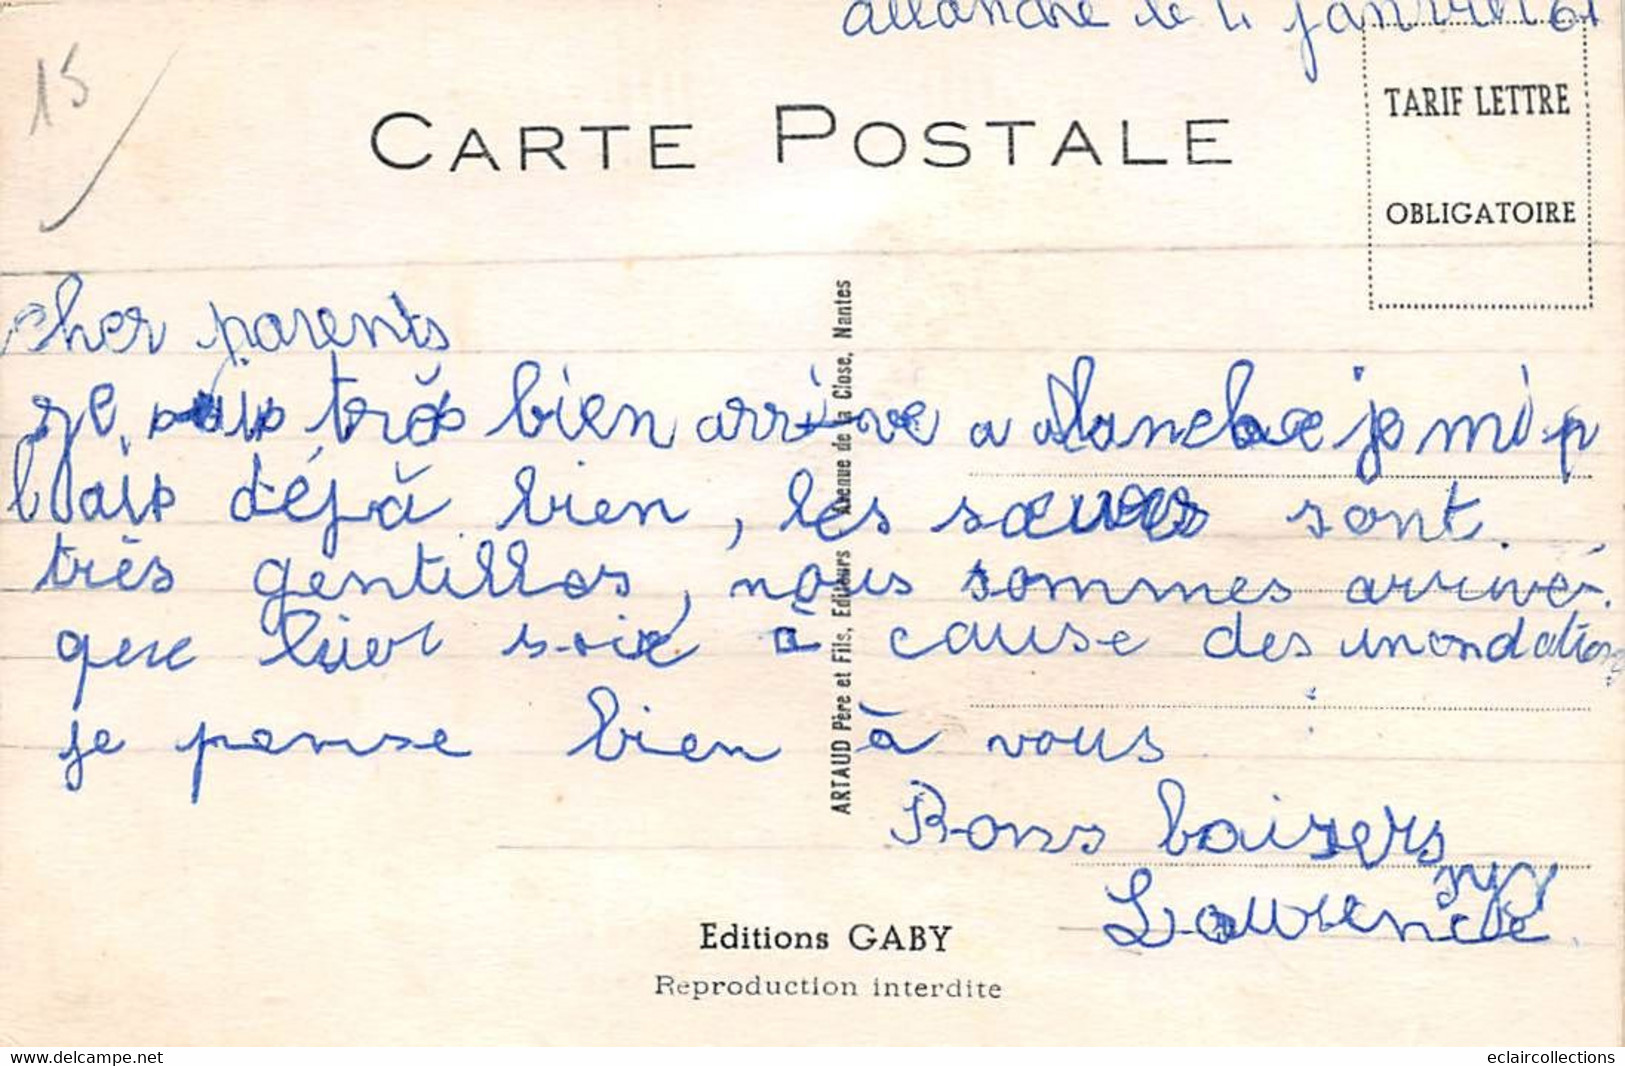 allanche le 4 janvier 61
15
CARTE POSTALE
TARIF LETTRE
OBLIGATOIRE
cher parents
je suis très bien arrivé a allanche je m'i p
lais déjà bien, les sœurs sont
très gentilles, nous sommes arrivé
que hier soir à cause des inondations
je pense bien à vous
Bons baisers
Laurence
ARTAUD Père et Fils, Editeurs Avenue de la Close, Nantes
Editions GABY
Reproduction interdite
www.delcampe.net
eclaircollections